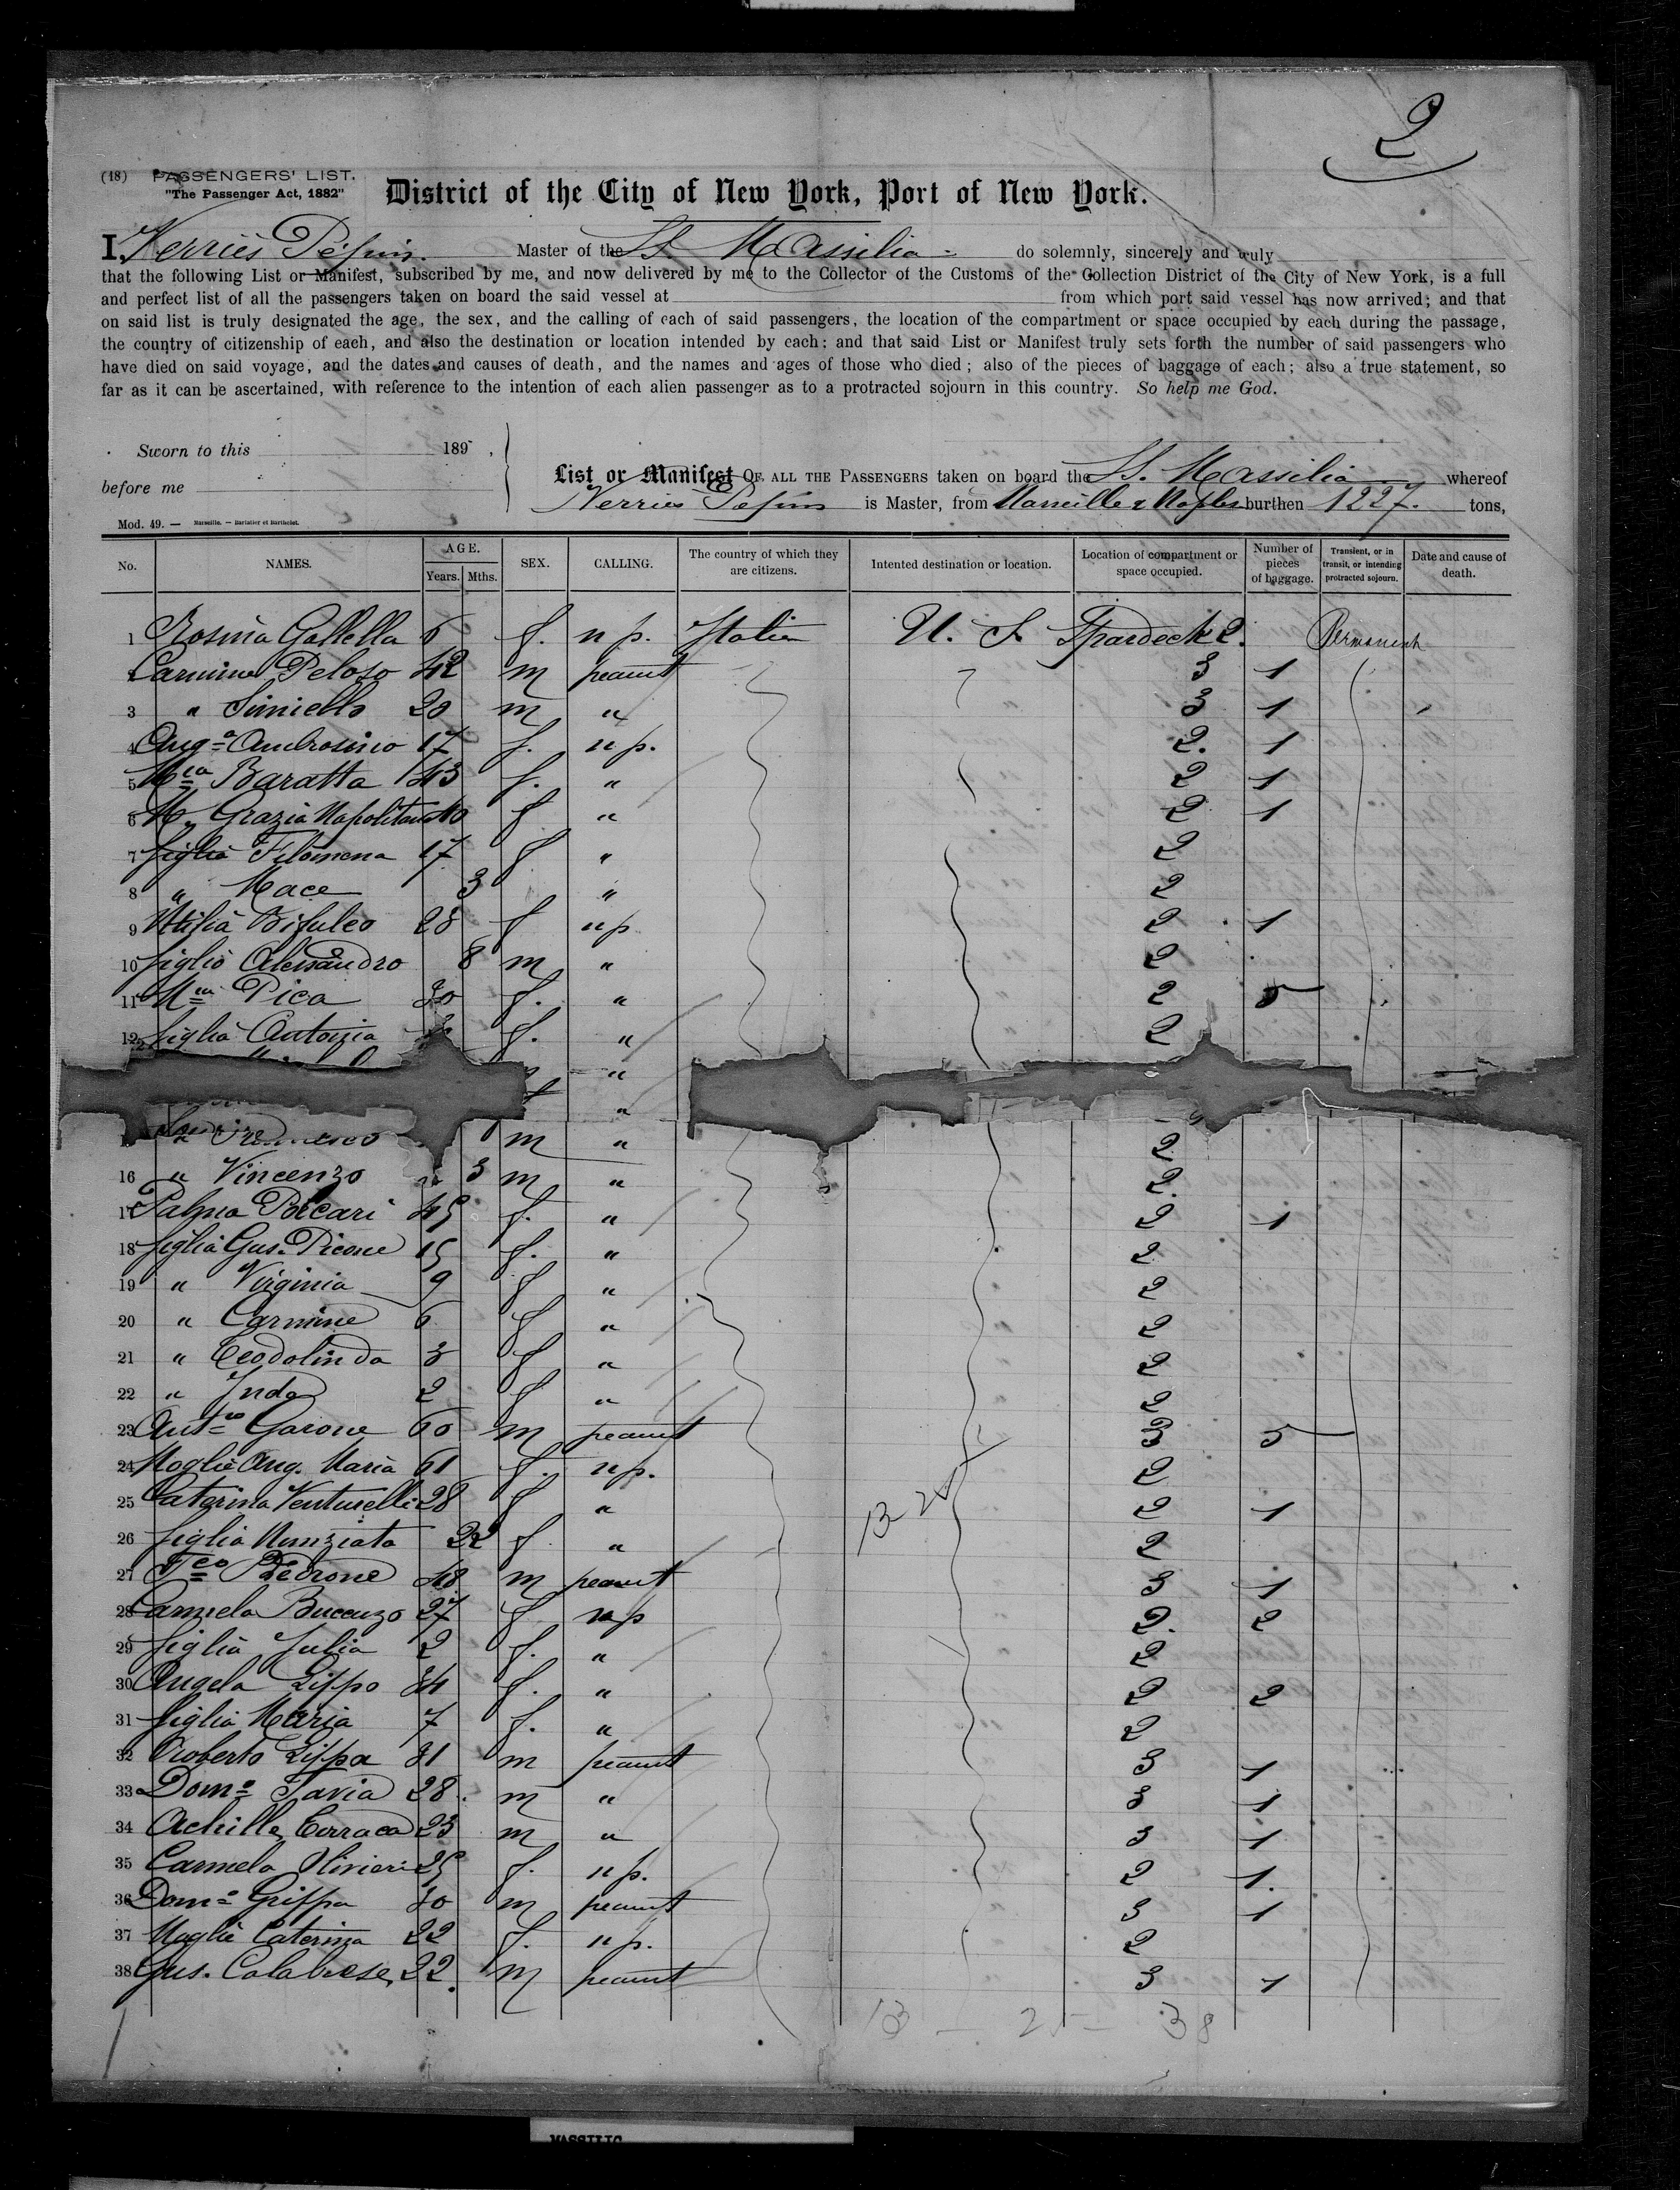 2
(18) PASSENGERS' LIST.
"The Passenger Act, 1882"
District of the City of New York, Port of New York.
I, Verriès Pépin. Master of the SS. Massilia do solemnly, sincerely and truly
that the following List or Manifest, subscribed by me, and now delivered by me to the Collector of the Customs of the Collection District of the City of New York, is a full
and perfect list of all the passengers taken on board the said vessel at from which port said vessel has now arrived; and that
on said list is truly designated the age, the sex, and the calling of each of said passengers, the location of the compartment or space occupied by each during the passage,
the country of citizenship of each, and also the destination or location intended by each; and that said List or Manifest truly sets forth the number of said passengers who
have died on said voyage, and the dates and causes of death, and the names and ages of those who died; also of the pieces of baggage of each; also a true statement, so
far as it can be ascertained, with reference to the intention of each alien passenger as to a protracted sojourn in this country. So help me God.
Sworn to this 189 ,
before me
List or Manifest OF ALL THE PASSENGERS taken on board the SS. Massilia whereof
Verriès Pépin is Master, from Marseille & Naples burthen 1227. tons,
Mod. 49. — Marseille. — Barlatier et Barthelet.
No. NAMES. AGE. Years. Mths. SEX. CALLING. The country of which they are citizens. Intended destination or location. Location of compartment or space occupied. Number of pieces of baggage. Transient, or in transit, or intending protracted sojourn. Date and cause of death.
1 Rosina Gallella 6 f. n p. Italien U. S Spardeck 2. Permanent
2 Carmine Peloso 42 m peasant 3 1
3 " Siniello 20 m " 3 1
4 Ang.a Ambrosino 17 f. n p. 2. 1
5 M.ia Baratta 43 f. " 2 1
6 M. Grazia Napolitano 40 f " 2 1
7 figlia Filomena 17 f " 2
8 " Mace 3 " 2
9 28 f n p 2 1
10 figlio Alessandro 8 m " 2
11 M.ia Pica 30 f. " 2 5
12 figlia Antonia f. " 2
"
"
m " 2
16 " Vincenzo 3 m " 2.
17 Palma Porcari 45 f. " 2 1
18 figlia Gus. Picone 15 f. " 2
19 " Virginia 9 f " 2
20 " Carmine 6 f " 2
21 " Teodolinda 3 f " 2
22 " Inda 2 f " 2
23 Ant.no Garone 60 m peasant 3 5
24 Moglie Ang. Maria 61 f. n p. 2
25 Caterina Venturelli 28 f " 2 1
26 figlia Nunziata 22 f " 2
27 F.co Pedrone 48 m peasant 3 1
28 Carmela Buccuzo 27 f n p 2. 2
29 figlia Julia 2 f. " 2
30 Angela Lippo 34 f. " 2 2
31 figlia Maria 7 f. " 2
32 Roberto Lippa 31 m peasant 3 1
33 Dom.o Tavia 28. m " 3 1
34 Achille Terraca 23 m " 3 1
35 Carmela Olivieri 25 f. n p. 2 1.
36 Dom.o Grippa 30 m peasant 3 1
37 Moglie Caterina 22 f. n p. 2
38 Gus. Calabrese 22. m peasant 3 1
13 — 25 — 38